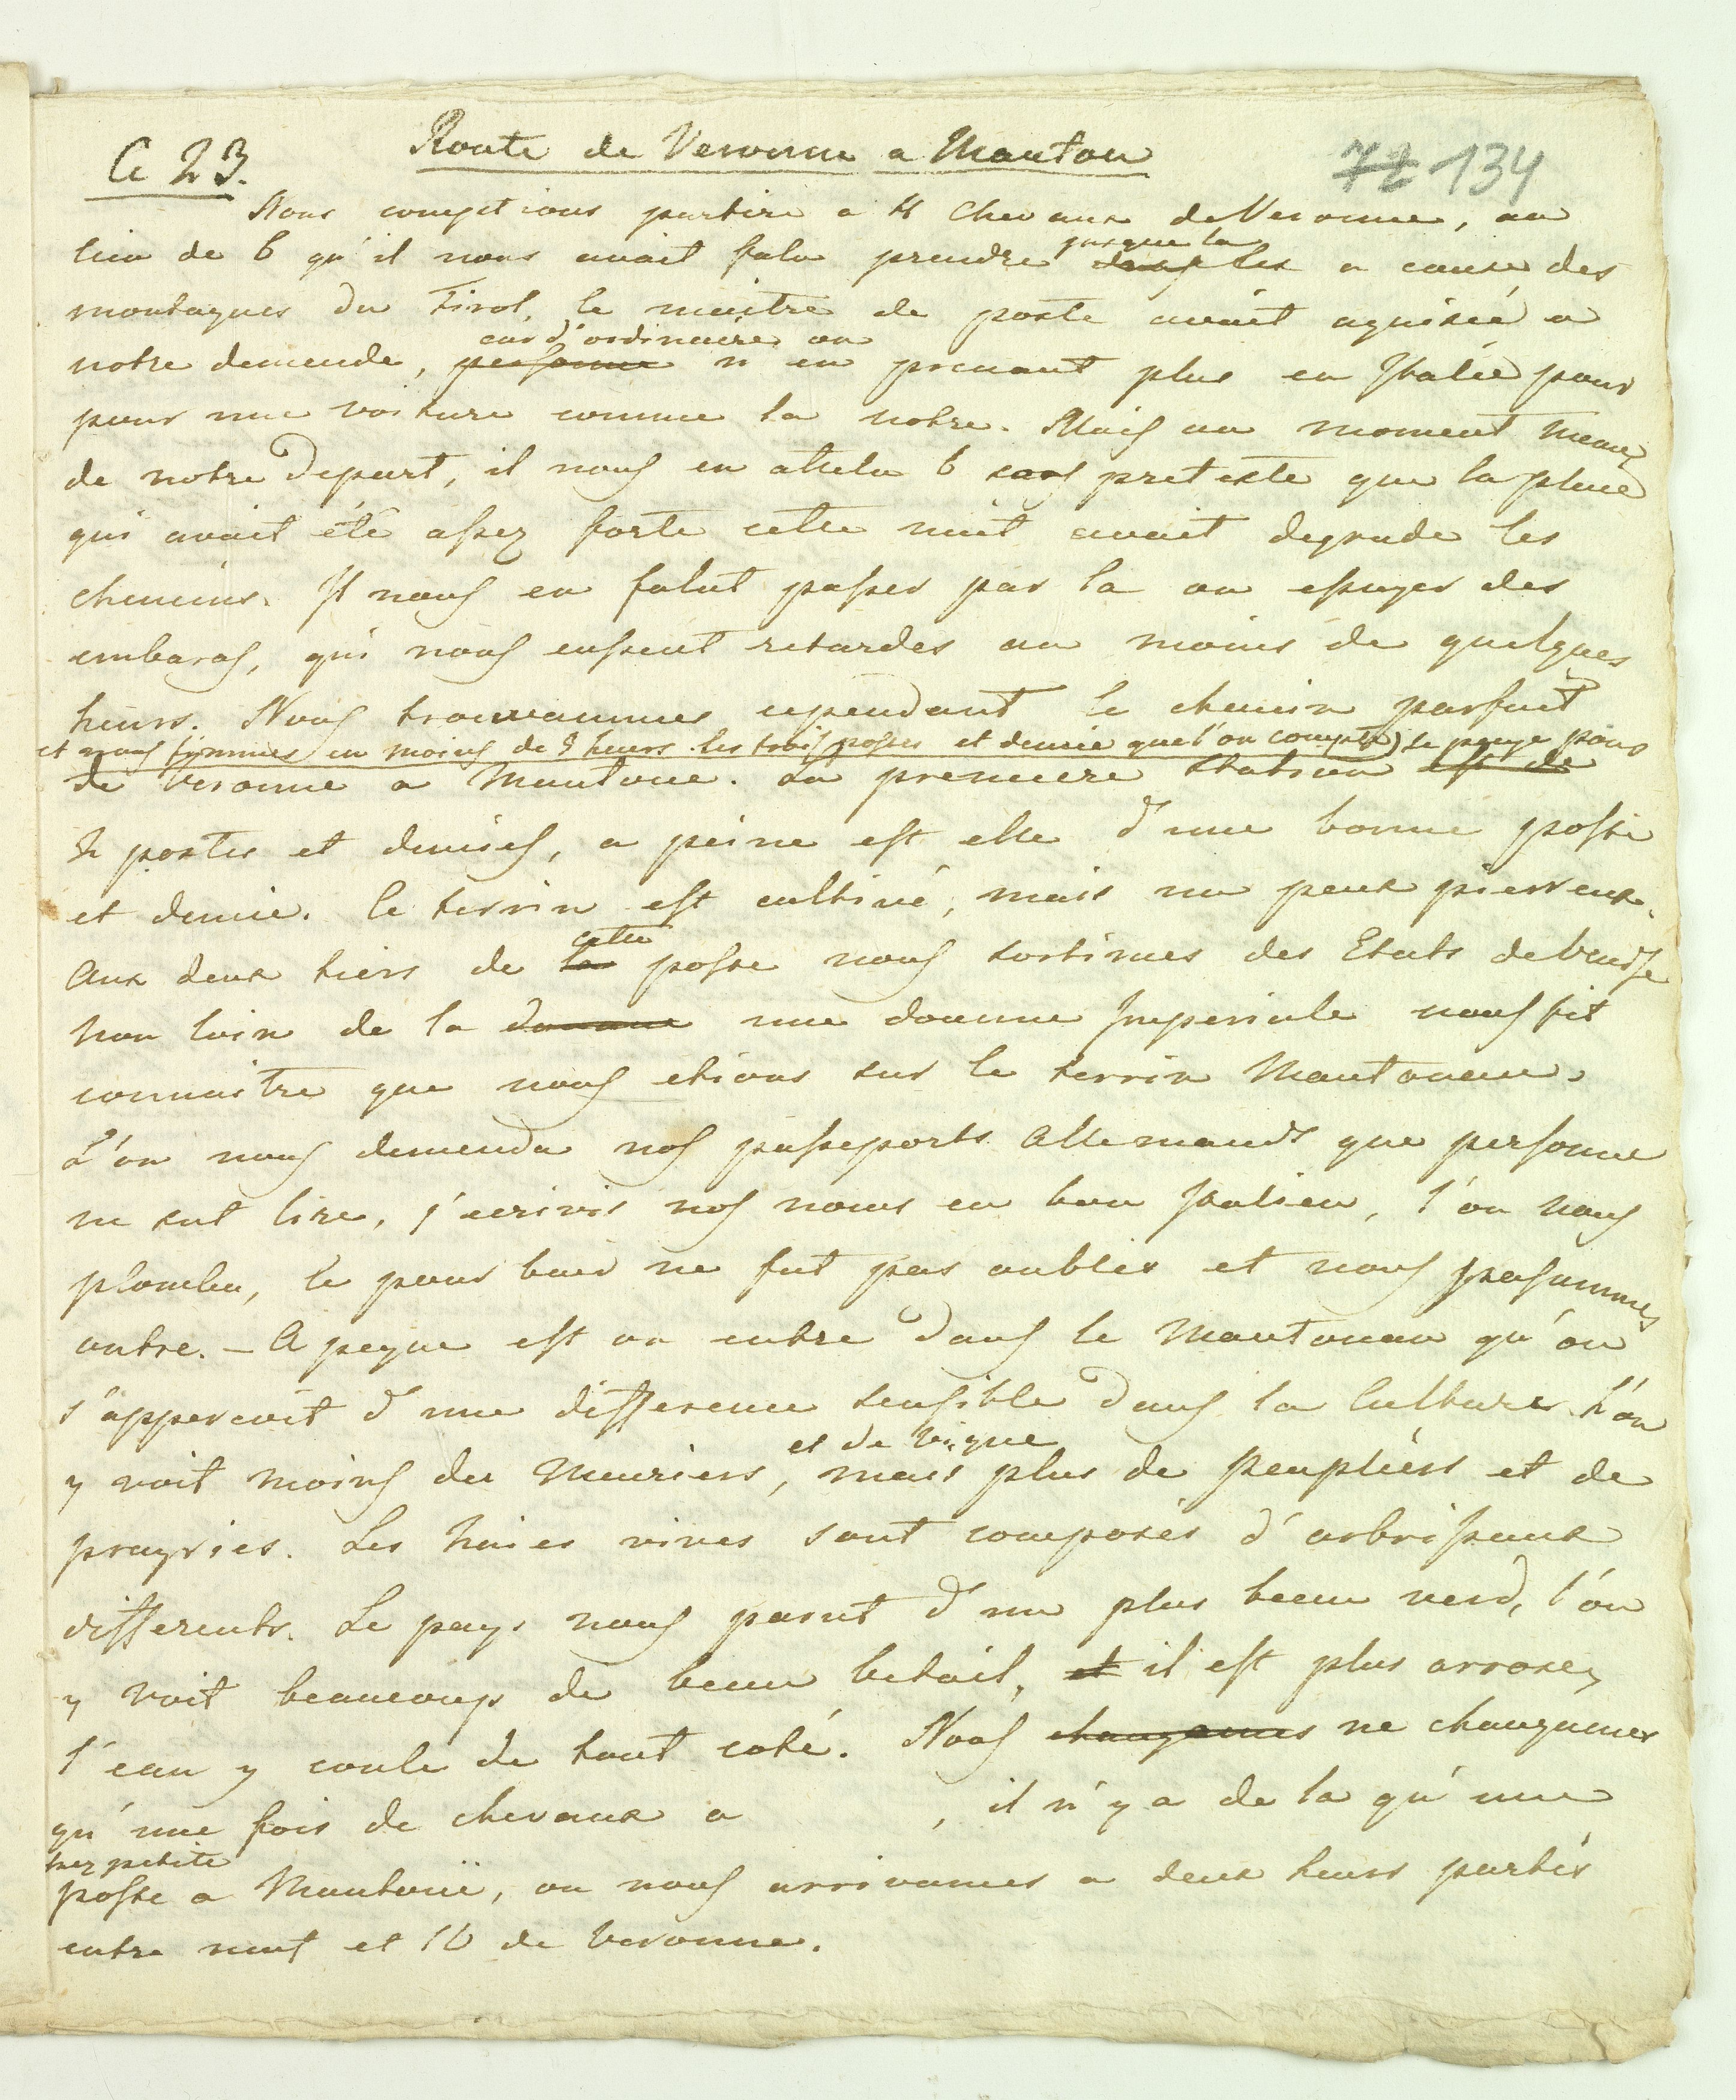 Route de Veronne a Mantou
C 23.
72 134
Nous comptions partire a 4 Chevaux de Veronne, au
jusque la
lieu de 6 qu'il nous avait falu prendre a cause des
montagnes du Tirol, le maitre de poste avait aquiscé a
car d'ordinaire on
notre demende, personne n en prenant plus en Italie pour
pour une voiture comme la notre. Mais au moment meme
de notre Depart, il nous en atela 6 sous pretexte que la pluie
qui avait été assez forte cette nuit avait degradé les
chemins. Il nous en falut passer par la ou essuyer des
embaras, qui nous eussent retardes au moins de quelques
heurs. Nous trouvammes cependant le chemin parfait
et nous fymmes en moins de 5 heurs les trois postes et demie que l'on compte) se paye pour
de Veronne a Mantoue. La premiere Station est de
2 postes et demies, a peine est elle d'une bonne poste
et demie. le terrin est cultivé, mais un peux pierreux.
cette
Aux deux tiers de la poste nous sortimes des Etats de Venise
non loin de la douane une douane Imperiale nous fit
connaitre que nous etions sur le terrin Mantouan.
L'on nous demenda nos passeports Allemands que personne
ne sut lire, j'ecrivis nos noms en bon Italien, l'on nous
plomba, le pour boir ne fut pas oublié et nous passammes
outre. - A peyne est on entre dans le Mantouan qu'on
s'appercoit d'une difference sensible dans la Culture. L'on
et de vigne
y voit moins de Meuriers, mais plus de peupliers et de
prayries. Les haies vives sont composés d'arbrisseaux
differents. Le pays nous parut d'un plus beau verd, l'on
y voit beaucoup de beau betail, et il est plus arrosez
l'eau y coule de tout coté. Nous changeames ne changames
qu'une fois de chevaux a , il n'y a de la qu'une
trez petite
poste a Mantoue, ou nous arrivames a deux heurs partis
entre neuf et 10 de Veronne.